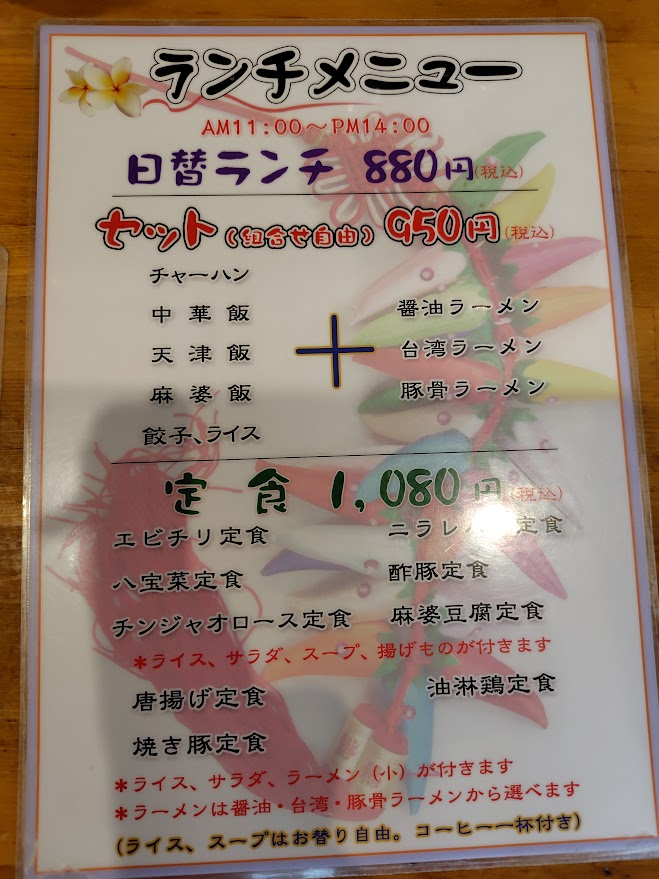 ランチメニュー
AM11:00～PM14:00
日替ランチ 880円(税込)
セット(組合せ自由) 950円(税込)
チャーハン
中華飯
天津飯
麻婆飯
餃子、ライス
＋
醤油ラーメン
台湾ラーメン
豚骨ラーメン
定食 1,080円(税込)
エビチリ定食 ニラレ 定食
八宝菜定食 酢豚定食
チンジャオロース定食 麻婆豆腐定食
＊ライス、サラダ、スープ、揚げものが付きます
唐揚げ定食 油淋鶏定食
焼き豚定食
＊ライス、サラダ、ラーメン（小）が付きます
＊ラーメンは醤油・台湾・豚骨ラーメンから選べます
(ライス、スープはお替り自由。コーヒー一杯付き)